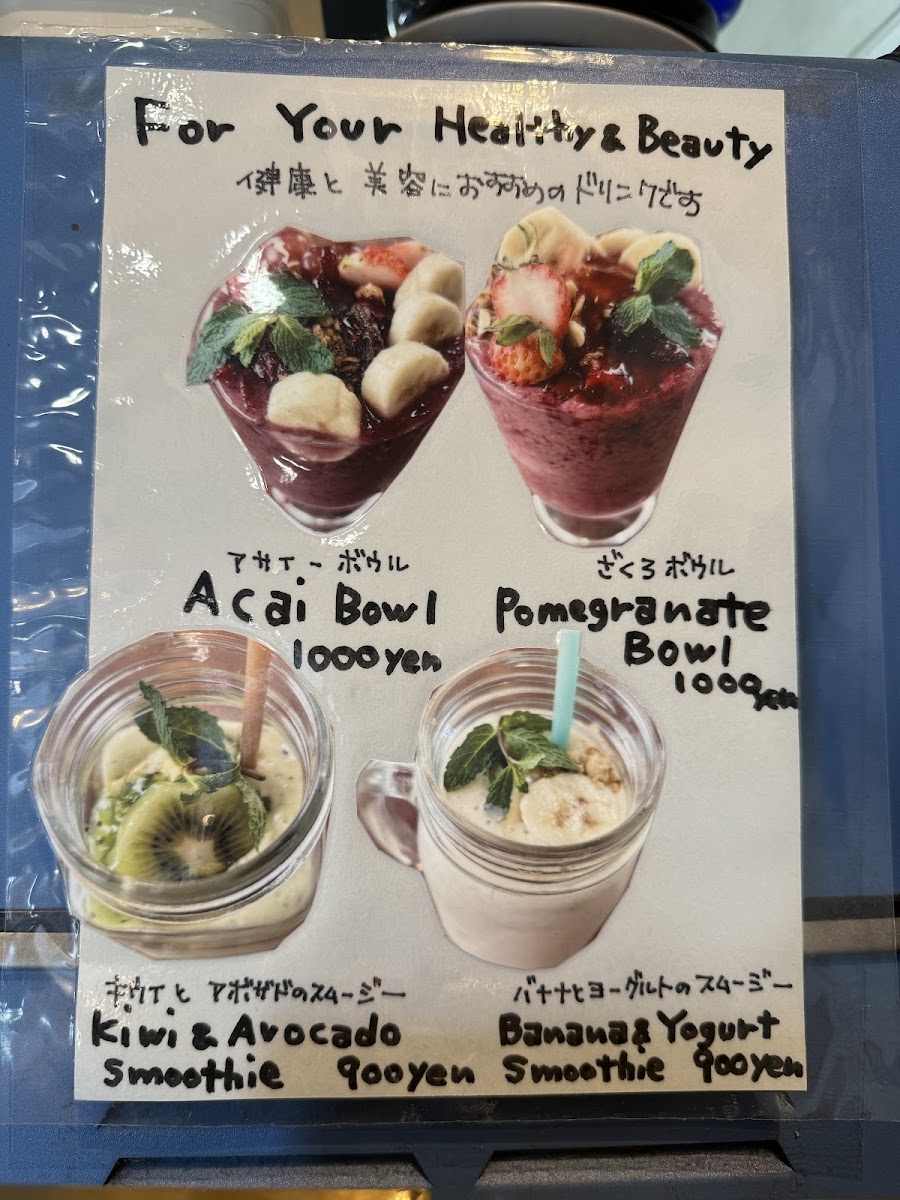 For Your Healthy & Beauty
健康と美容におすすめのドリンクです
アサイーボウル
Acai Bowl
1000yen
ざくろボウル
Pomegranate
Bowl
1000yen
キウイとアボガドのスムージー
Kiwi & Avocado
Smoothie 900yen
バナナとヨーグルトのスムージー
Banana & Yogurt
Smoothie 900yen